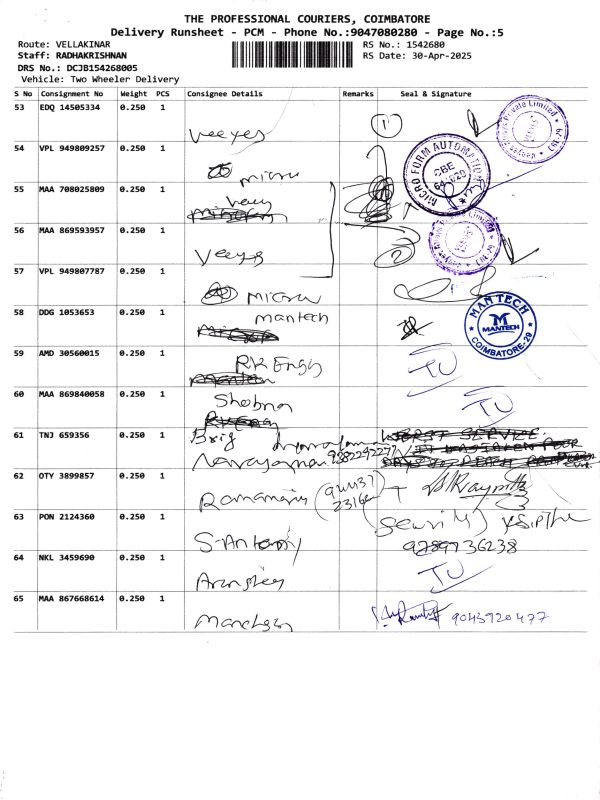 THE PROFESSIONAL COURIERS, COIMBATORE
Delivery Runsheet - PCM - Phone No.:9047080280 - Page No.:5
Route: VELLAKINAR
RS No.: 1542680
Staff: RADHAKRISHNAN
RS Date: 30-Apr-2025
DRS No.: DCJB154268005
Vehicle: Two Wheeler Delivery
S No Consignment No Weight PCS Consignee Details Remarks Seal & Signature
53 EDQ 14505334 0.250 1
veeyes 1
Private Limited
54 VPL 949809257 0.250 1
micru
MICRO FORM AUTOMATION
CBE
55 MAA 708025809 0.250 1
veey
56 MAA 869593957 0.250 1
Veeyes 2
Limited
57 VPL 949807787 0.250 1
micru
58 DDG 1053653 0.250 1
mantech
MANTECH
M
MANTECH
COIMBATORE-29
59 AMD 30560015 0.250 1
RK Engg TU
60 MAA 869840058 0.250 1
Shobna TU
61 TNJ 659356 0.250 1
Brig
Narayanan 9382292277
62 OTY 3899857 0.250 1
63 PON 2124360 0.250 1
S-Antony
9789736238
64 NKL 3459690 0.250 1
TU
65 MAA 867668614 0.250 1
9043920477